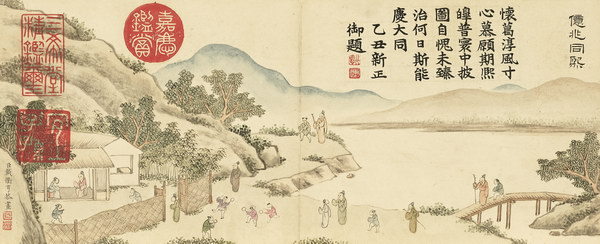 億兆同熙
懷葛淳風寸
心慕願期熙
皞普寰中披
圖自愧未臻
治何日斯能
慶大同
乙丑新正
御題
嘉慶鑑賞
三希堂精鑑璽
宜子孫
臣戴衢亨恭畫